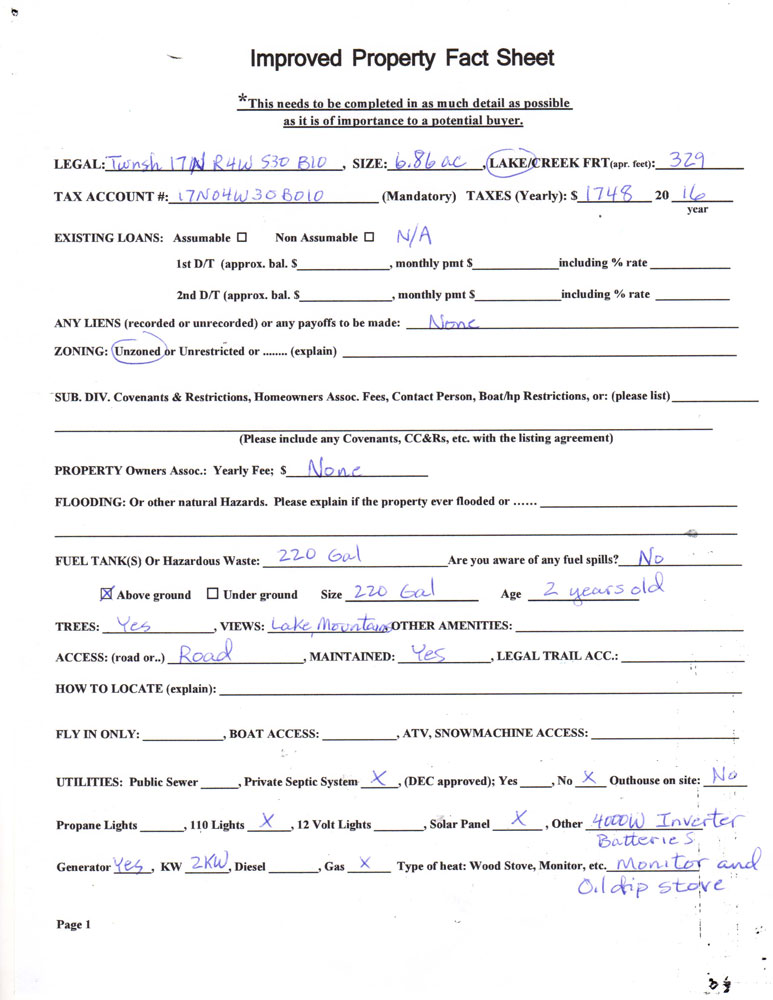 Improved Property Fact Sheet
*This needs to be completed in as much detail as possible
as it is of importance to a potential buyer.
LEGAL: Twnsh 17N R4W S30 B10, SIZE: 6.86 ac, LAKE/CREEK FRT(apr. feet): 329
TAX ACCOUNT #: 17N04W30B010 (Mandatory) TAXES (Yearly): $ 1748 20 16
year
EXISTING LOANS: Assumable ☐ Non Assumable ☐ N/A
1st D/T (approx. bal. $____________, monthly pmt $____________including % rate ____________
2nd D/T (approx. bal. $____________, monthly pmt $____________including % rate ____________
ANY LIENS (recorded or unrecorded) or any payoffs to be made: None
ZONING: Unzoned or Unrestricted or ........ (explain) ____________
SUB. DIV. Covenants & Restrictions, Homeowners Assoc. Fees, Contact Person, Boat/hp Restrictions, or: (please list)____________
(Please include any Covenants, CC&Rs, etc. with the listing agreement)
PROPERTY Owners Assoc.: Yearly Fee; $ None
FLOODING: Or other natural Hazards. Please explain if the property ever flooded or ...... ____________
FUEL TANK(S) Or Hazardous Waste: 220 Gal Are you aware of any fuel spills? No
☒ Above ground ☐ Under ground Size 220 Gal Age 2 years old
TREES: Yes, VIEWS: Lake, Mountains OTHER AMENITIES: ____________
ACCESS: (road or..) Road, MAINTAINED: Yes, LEGAL TRAIL ACC.: ____________
HOW TO LOCATE (explain): ____________
FLY IN ONLY: ____________, BOAT ACCESS: ____________, ATV, SNOWMACHINE ACCESS: ____________
UTILITIES: Public Sewer ______, Private Septic System X, (DEC approved); Yes _____, No X Outhouse on site: No
Propane Lights _______, 110 Lights X, 12 Volt Lights ________, Solar Panel X, Other 4000W Inverter
Batteries
Generator Yes, KW 2KW, Diesel ________, Gas X Type of heat: Wood Stove, Monitor, etc. Monitor and
Oil drip stove
Page 1